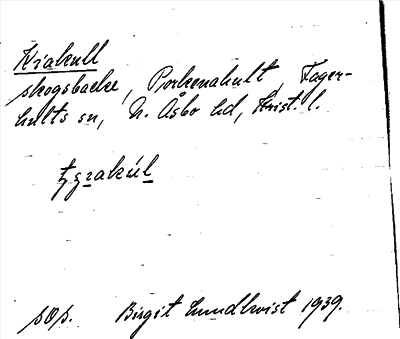 Krakull
skogsbacke, Porkenahult, Fager-
hults sn, N. Åsbo hd, Krist. l.
sOp. Birgit Lundkvist 1939.